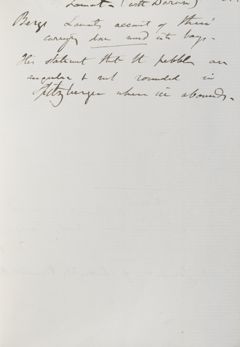 Lamont (with Darwin)
Bergs Lamont's account of their
carrying into bays.
His statement that the pebbles are
angular & not rounded in
Spitzbergen where ice abounds.